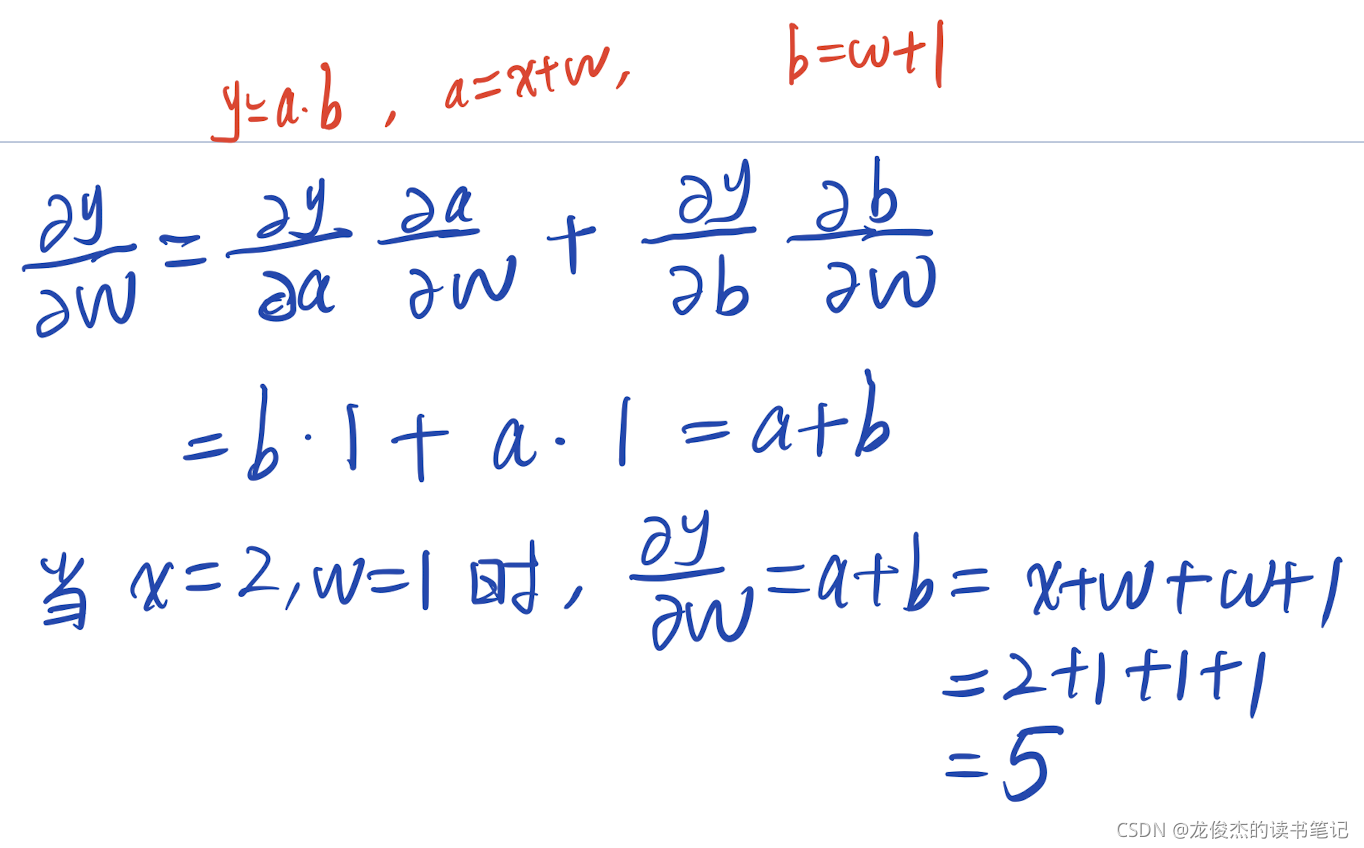 y=a·b , a=x+w, b=w+1
∂y/∂w = ∂y/∂a ∂a/∂w + ∂y/∂b ∂b/∂w
= b·1 + a·1 = a+b
当 x=2,w=1 时, ∂y/∂w = a+b = x+w+w+1
= 2+1+1+1
= 5
CSDN @龙俊杰的读书笔记